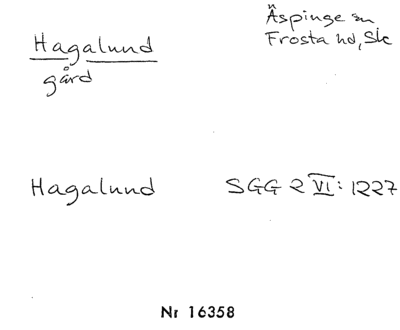 Hagalund
gård
Äspinge sn
Frosta hd, Sk
Hagalund
SGG 2 VI: 1227
Nr 16358